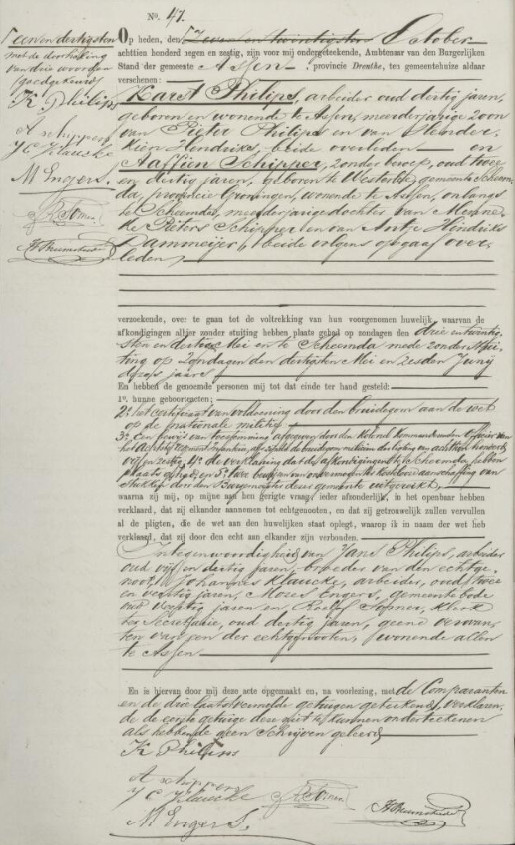 No. 47.
een en dertigsten
met de doorhaling
van drie woorden
goedgekeurd
K Philips
A schipper
J C Klaucke
M Engers.
Op heden, den Zeven en twintigsten October
achttien honderd negen en zestig, zijn voor mij ondergeteekende, Ambtenaar van den Burgerlijken
Stand der gemeente Assen, provincie Drenthe, ten gemeentehuize aldaar
verschenen:
Karst Philips, arbeider oud dertig jaren,
geboren en wonende te Assen, meerderjarige zoon
van Pieter Philips en van
Hendriks, beide overleden en
Aaffien Schipper, zonder beroep, oud twee
en dertig jaren, geboren te Westerlee, gemeente Scheem-
da, provincie Groningen, wonende te Assen, onlangs
te Scheemda, meerderjarige dochter van Menne
Pieters Schipper en van Antje Hendriks
Dammeijer, beide volgens opgaaf over-
leden,
verzoekende, over te gaan tot de voltrekking van hun voorgenomen huwelijk, waarvan de
afkondigingen alhier zonder stuiting hebben plaats gehad op zondagen den drie en twintig-
sten en dertigsten Mei en te Scheemda mede zonder stui-
ting op Zondagen den dertigsten Mei en zesden Junij
dezes jaars
En hebben de genoemde personen mij tot dat einde ter hand gesteld:
1o. hunne geboorteacten;
2o. het certificaat van voldoening door den bruidegom aan de wet
op de nationale militie
3o. een bewijs van toestemming afgegeven door den Kolonel Kommanderende Officier van
het achtste regiment infanterie,
vijf en zestig 4o. de verklaring dat de afkondigingen te Scheemda hebben
plaats gehad en 5o. twee bewijzen van onvermogen tot kostelooze aanschaffing van
stukken door den Burgemeester dezer gemeente uitgereikt,
waarna zij mij, op mijne aan hen gerigte vraag, ieder afzonderlijk, in het openbaar hebben
verklaard, dat zij elkander aannemen tot echtgenooten, en dat zij getrouwelijk zullen vervullen
al de pligten, die de wet aan den huwelijken staat oplegt, waarop ik in naam der wet heb
verklaard, dat zij door den echt aan elkander zijn verbonden.
In tegenwoordigheid van Jans Philips, arbeider
oud vijf en dertig jaren, broeder van den echtge-
noot, Johannes Klaucke, arbeider, oud twee
en veertig jaren, Mozes Engers, gemeentebode
oud veertig jaren en Roelof Somer, klerk
ter Secretarie, oud dertig jaren, geene verwan-
ten van een der echtgenooten, wonende allen
te Assen
En is hiervan door mij deze acte opgemaakt en, na voorlezing, met de Comparanten
en de drie laatstvermelde getuigen geteekend, verklaren-
de de eerste getuige deze niet te kunnen onderteekenen
als hebbende geen schrijven geleerd
K Philips
A schipper
J C Klaucke
M Engers.